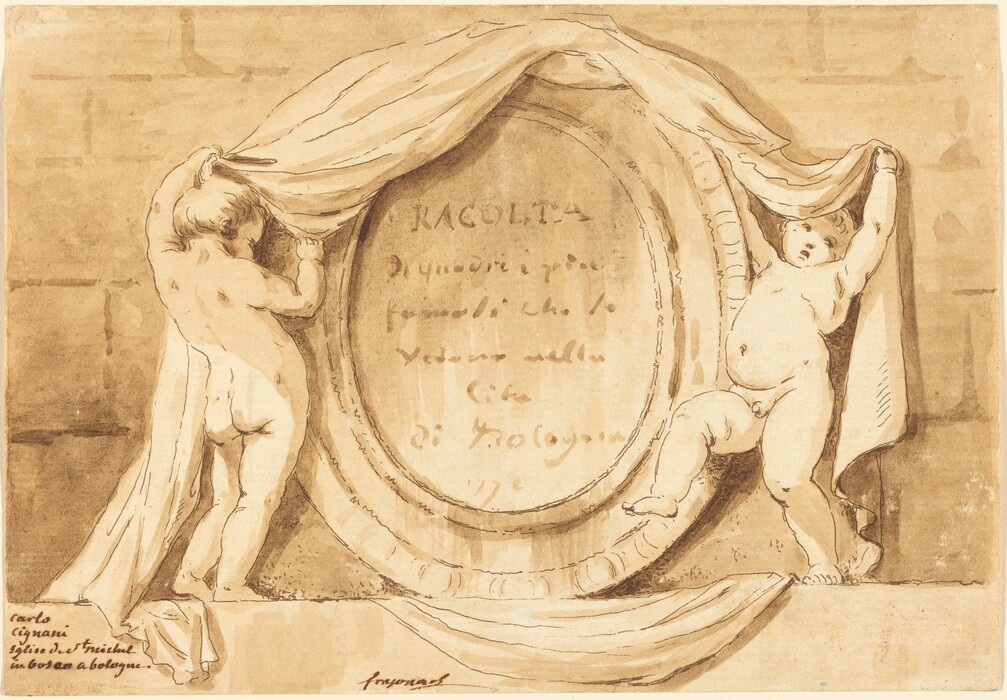 RACOLTA
di quadri i più
famosi che se
vedano nella
Cita
di Bologna
177
carlo
cignani
eglise de st michel
in bosco a bologne.
fragonard